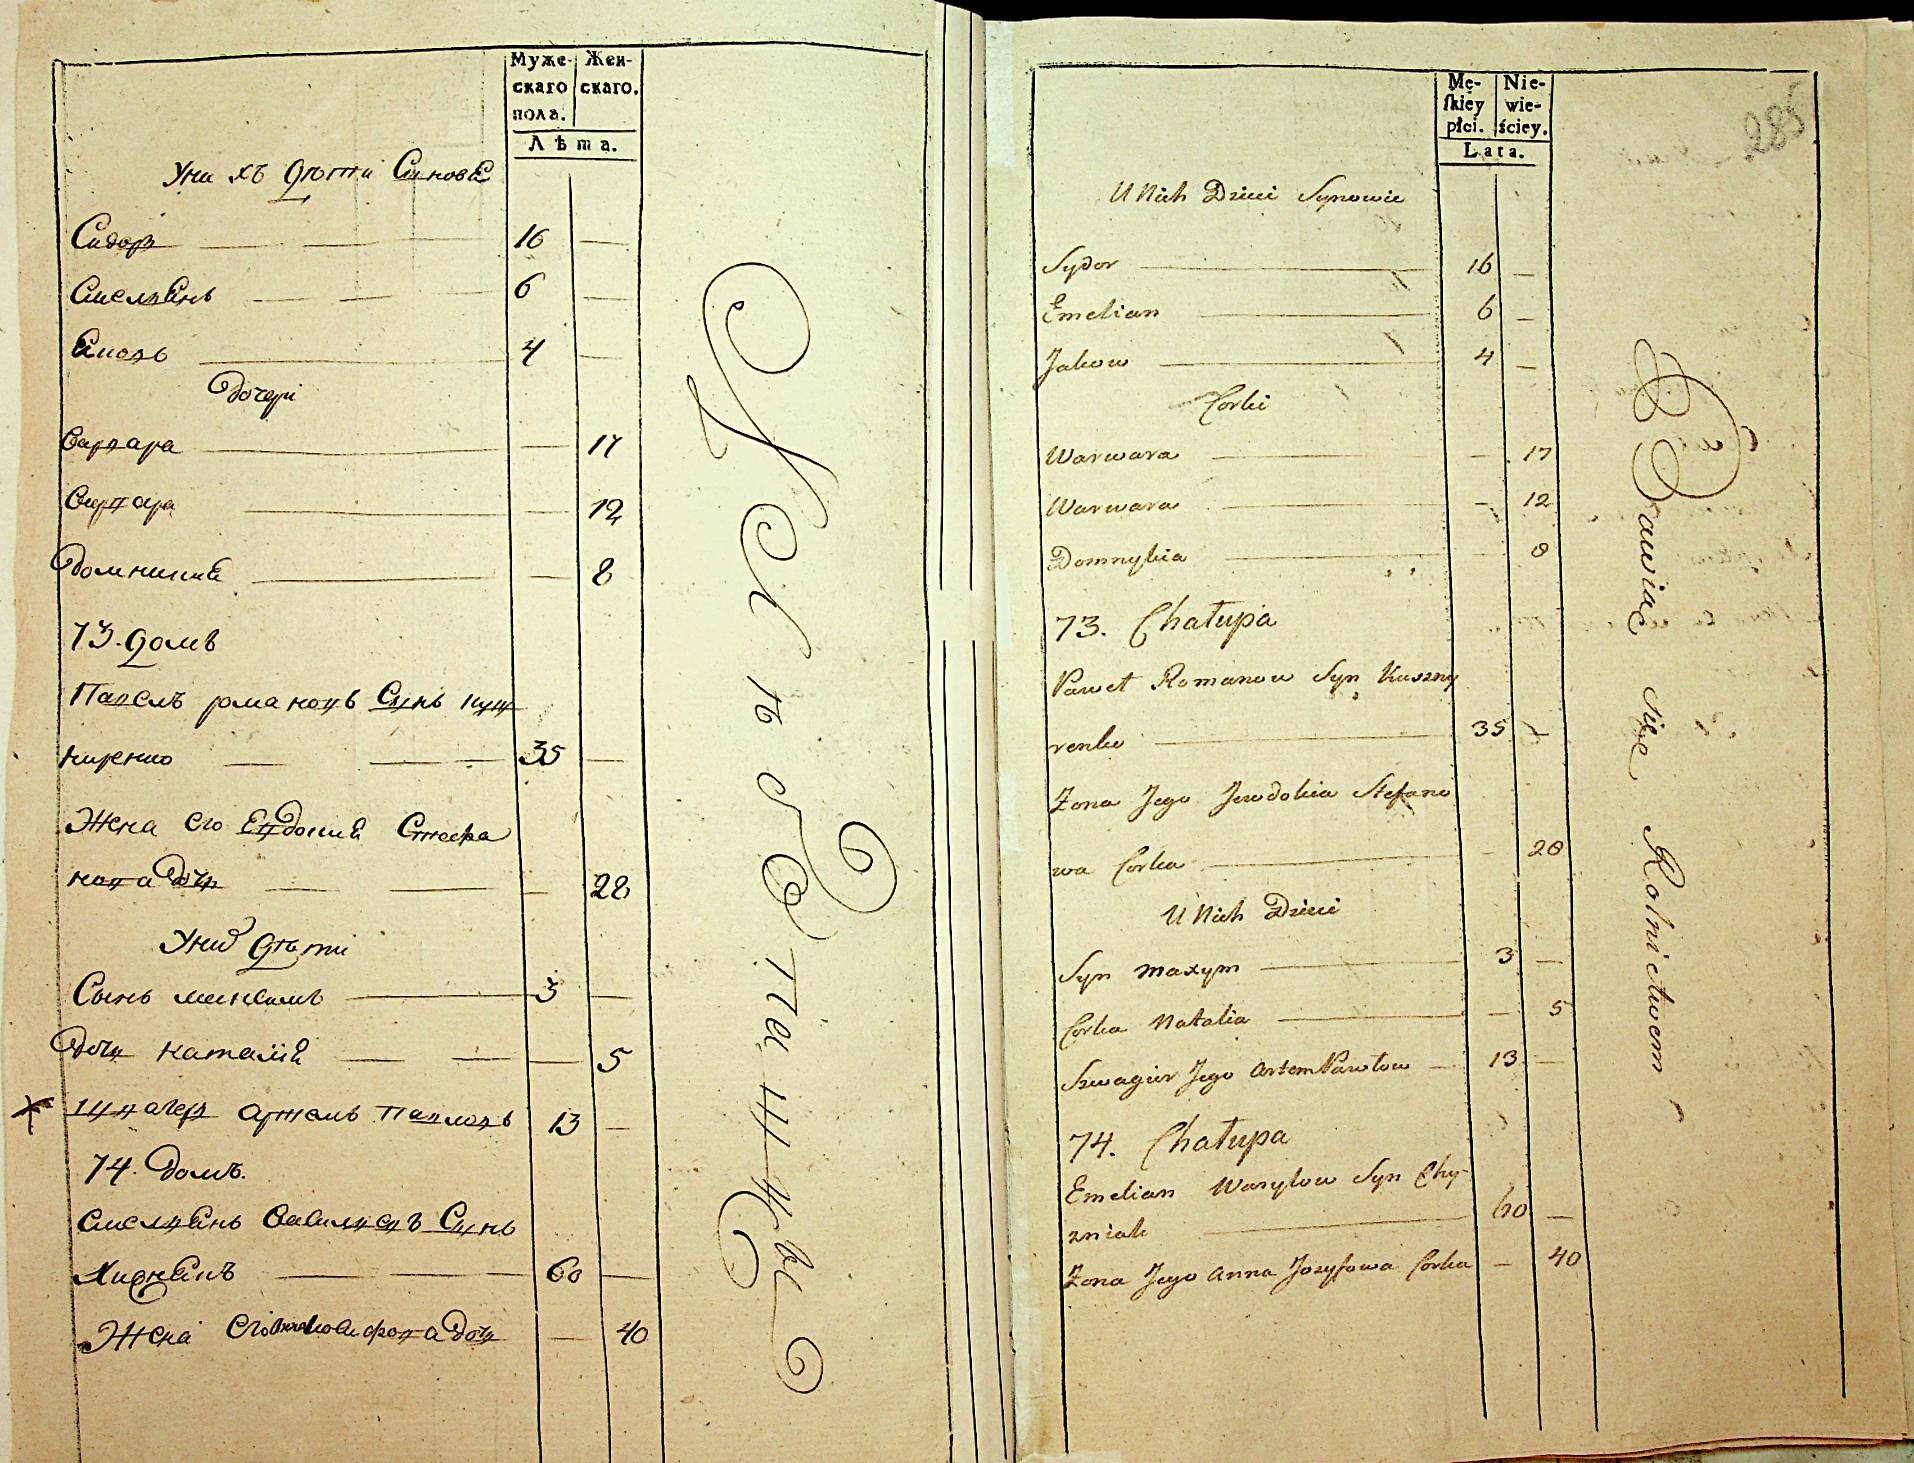 Муже-
скаго
пола.
Жен-
скаго.
Лѣта.
Уни хъ дѣти Синовѣ
Сидоръ 16
Емелянъ 6
Яковъ 4
Дочери
Варвара 17
Варвара 12
Домникия 8
73. домъ
Павелъ романовъ Сынъ куш
ниренко 35
Жена его Евдокия Стефа
нова дочь 28
Уних дѣти
Сынъ максимъ 3
Дочь наталия 5
швагеръ артемъ павловъ 13
74. домъ.
Емелиянъ Василиевъ Сынъ
60
Жена его дочь 40
Хлѣбопашество
Mę-
ſkiey
płci.
Nie-
wie-
ściey.
Lata.
285
U Nich Dzieci Synowie
Sydor 16
Emelian 6
Jakow 4
Corki
Warwara 17
Warwara 12
Domnykia 8
73. Chałupa
Paweł Romanow Syn Kuszny
renko 35
Żona Jego Jewdokia Stefano
wa Corka 28
U Nich Dzieci
Syn maxym 3
Corka Natalia 5
Szwagier Jego Artem Pawłow 13
74. Chałupa
Emelian Wasylow Syn Chy-
zniak 60
Żona Jego Anna Jozyfowa Corka 40
Bawiąc się Rolnictwem